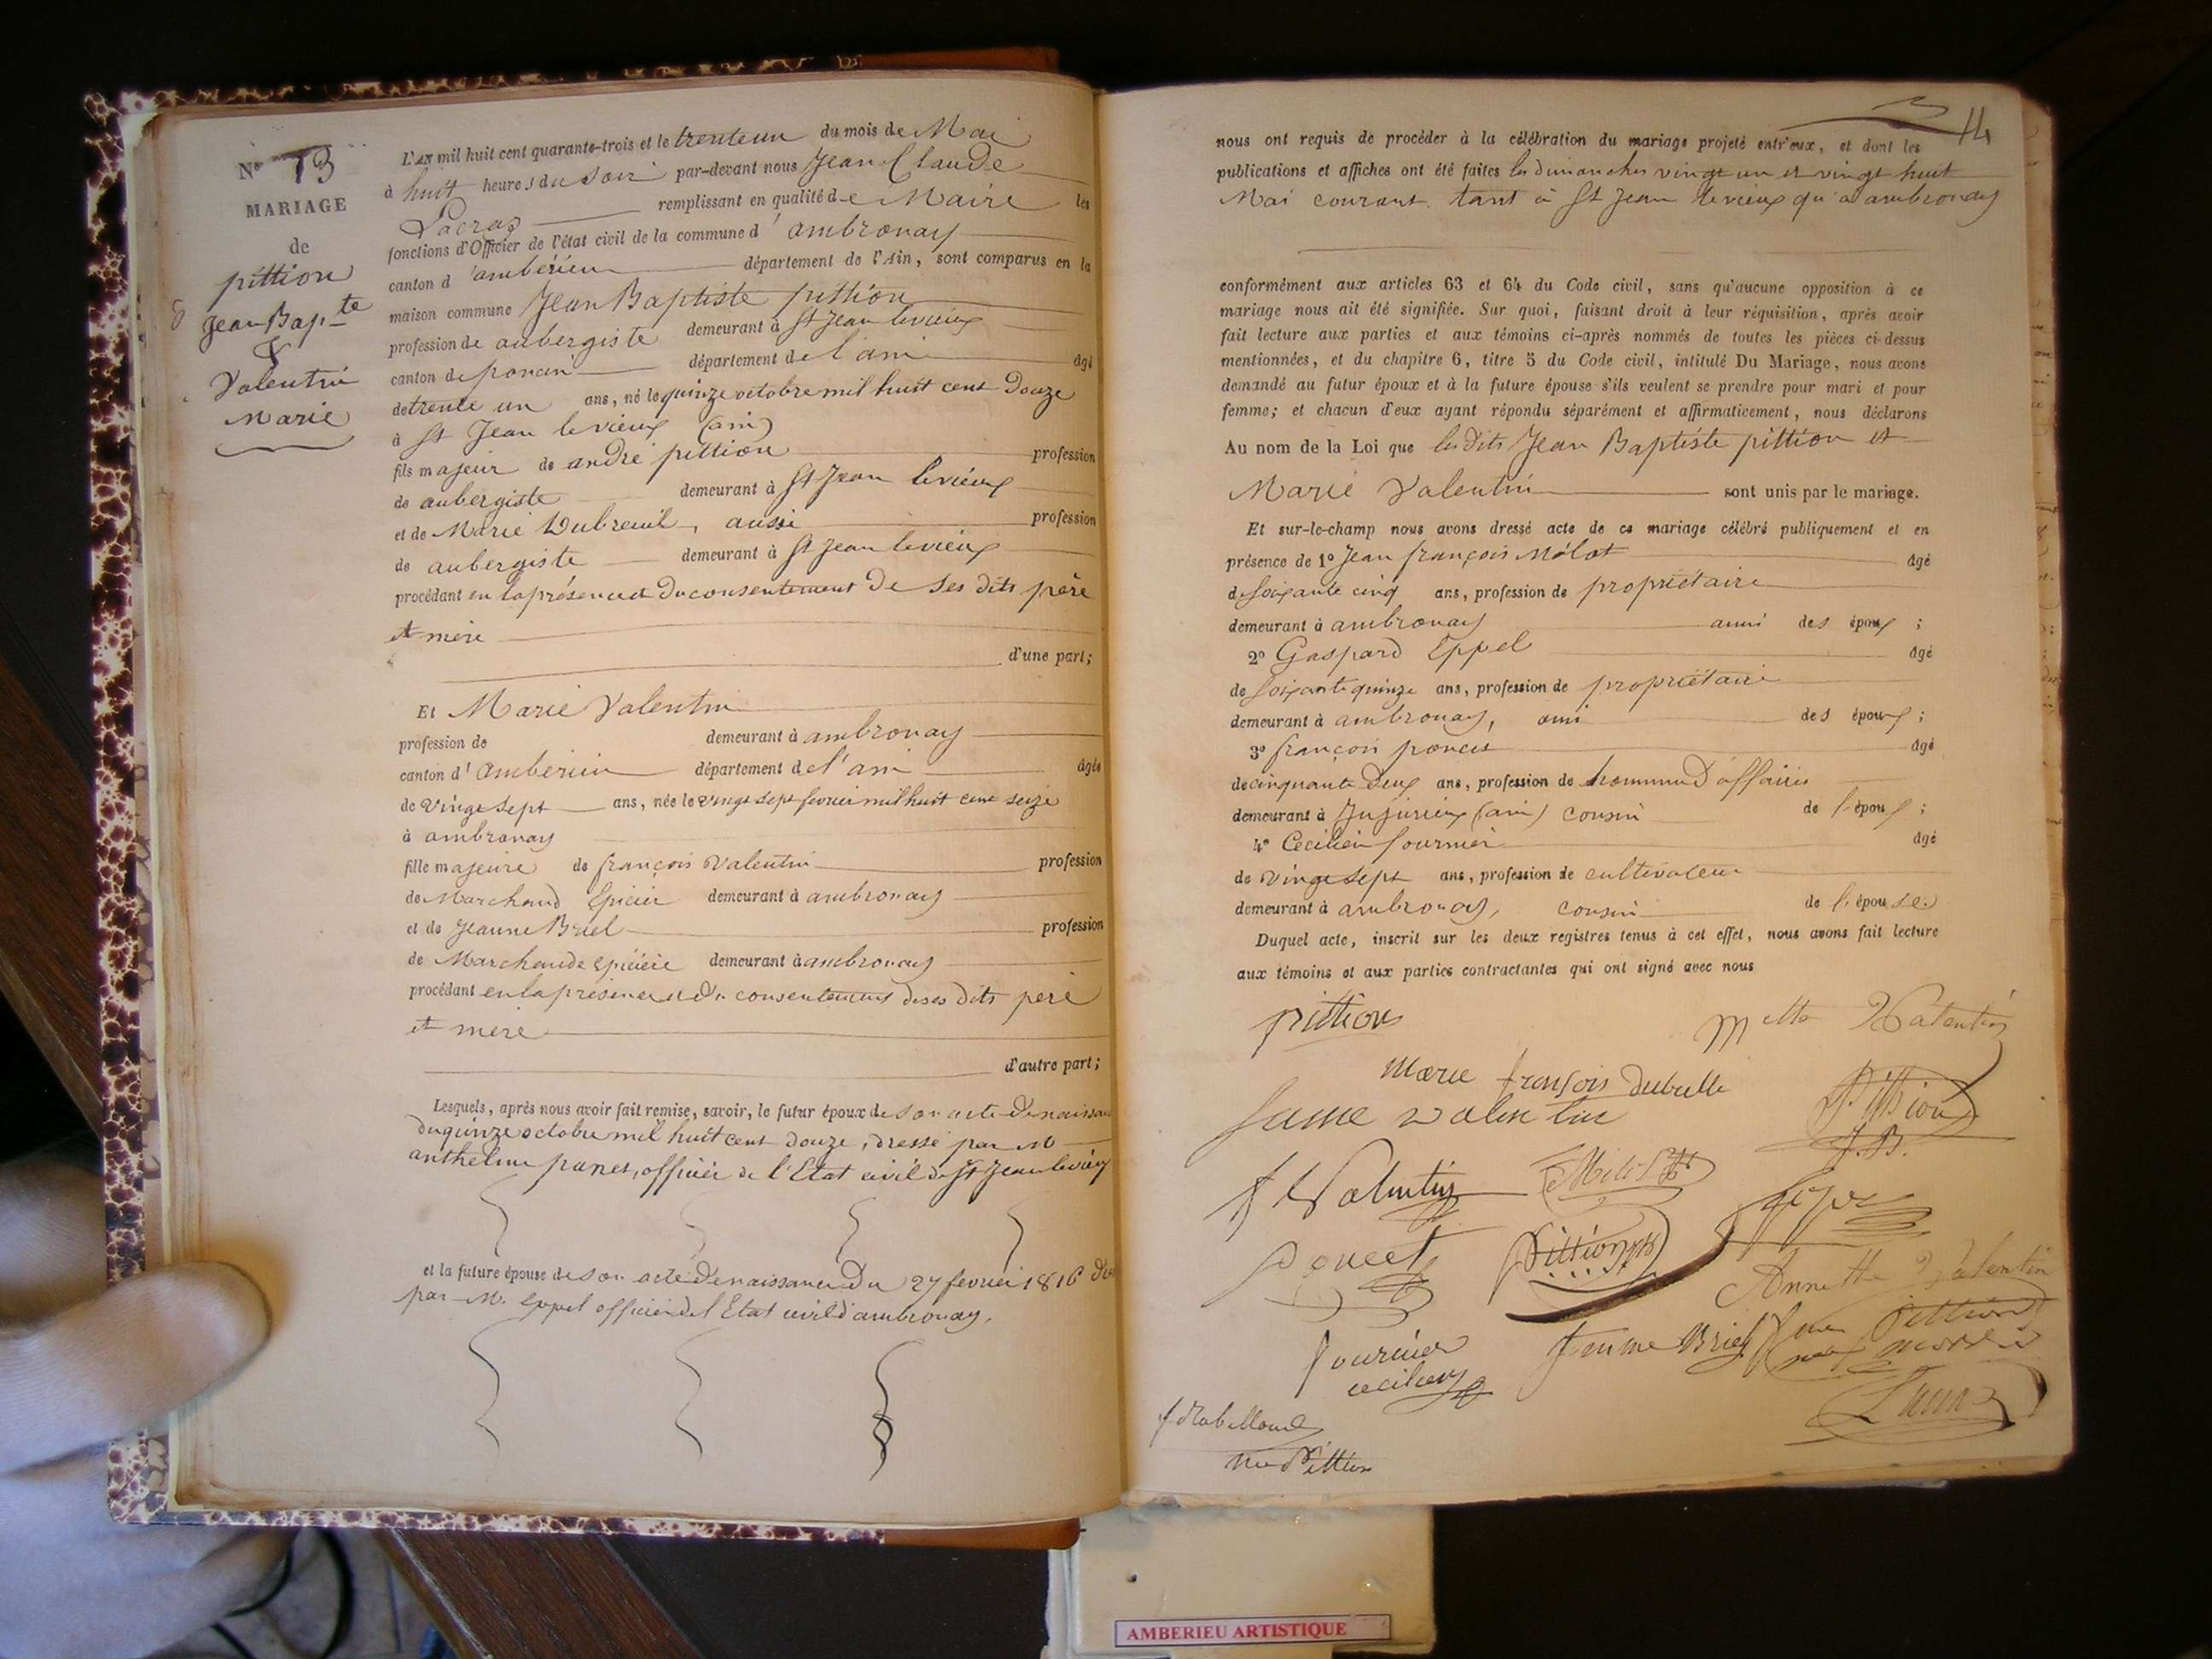 Nº 13
MARIAGE
de
pittion
Jean Bapte
&
Valentin
Marie
L'AN mil huit cent quarante-trois et le trente un du mois de Mai
à huit heures du soir par-devant nous Jean Claude
Lacraz remplissant en qualité de Maire les
fonctions d'Officier de l'état civil de la commune d'ambronay
canton d'ambérieu département de l'Ain, sont comparus en la
maison commune Jean Baptiste pittion
profession de aubergiste demeurant à St Jean le vieux
canton de poncin département de l'ain âgé
de trente un ans, né le quinze octobre mil huit cent douze
à St Jean le vieux (ain)
fils majeur de andré pittion profession
de aubergiste demeurant à St Jean le vieux
et de Marie Dubreuil, aussi profession
de aubergiste demeurant à St Jean le vieux
procédant en la présence et du consentement de ses dits père
et mère
d'une part;
Et Marie Valentin
profession de demeurant à ambronay
canton d'ambérieu département de l'ain âgée
de vingt sept ans, née le vingt sept fevrier mil huit cent seize
à ambronay
fille majeure de françois Valentin profession
de Marchand Epicier demeurant à ambronay
et de Jeanne Briel profession
de Marchande epiciere demeurant à ambronay
procédant en la présence et du consentement de ses dits pere
et mere
d'autre part;
Lesquels, après nous avoir fait remise, savoir, le futur époux de son acte de naissance
du quinze octobre mil huit cent douze, dressé par M
anthelme ponet, officier de l'Etat civil de St Jean le vieux
et la future épouse de son acte de naissance du 27 fevrier 1816
par M. Eppel officier de l'Etat civil d'ambronay.
14
nous ont requis de procéder à la célébration du mariage projeté entr'eux, et dont les
publications et affiches ont été faites les dimanches vingt un et vingt huit
Mai courant tant à St Jean le vieux qu'à ambronay
conformément aux articles 63 et 64 du Code civil, sans qu'aucune opposition à ce
mariage nous ait été signifiée. Sur quoi, faisant droit à leur réquisition, après avoir
fait lecture aux parties et aux témoins ci-après nommés de toutes les pièces ci-dessus
mentionnées, et du chapitre 6, titre 5 du Code civil, intitulé Du Mariage, nous avons
demandé au futur époux et à la future épouse s'ils veulent se prendre pour mari et pour
femme; et chacun d'eux ayant répondu séparément et affirmativement, nous déclarons
Au nom de la Loi que les dits Jean Baptiste pittion et
Marie Valentin sont unis par le mariage.
Et sur-le-champ nous avons dressé acte de ce mariage célébré publiquement et en
présence de 1º Jean françois Mélot âgé
de soixante cinq ans, profession de propriétaire
demeurant à ambronay ami des époux ;
2º Gaspard Eppel âgé
de soixante quinze ans, profession de propriétaire
demeurant à ambronay, ami des époux ;
3º françois poncet âgé
de cinquante deux ans, profession de homme d'affaires
demeurant à Jujurieux (ain) cousin de l'époux ;
4º Cecilien fournier âgé
de vingt sept ans, profession de cultivateur
demeurant à ambronay, cousin de l'épouse
Duquel acte, inscrit sur les deux registres tenus à cet effet, nous avons fait lecture
aux témoins et aux parties contractantes qui ont signé avec nous
pittion
Mtte Valentin
Marie
Pittion
J.B.
f Valentin
Poncet
Pittion
Annette Valentin
fournier
cecilien
Jeanne Briel
Pittion
née Pittion
AMBERIEU ARTISTIQUE